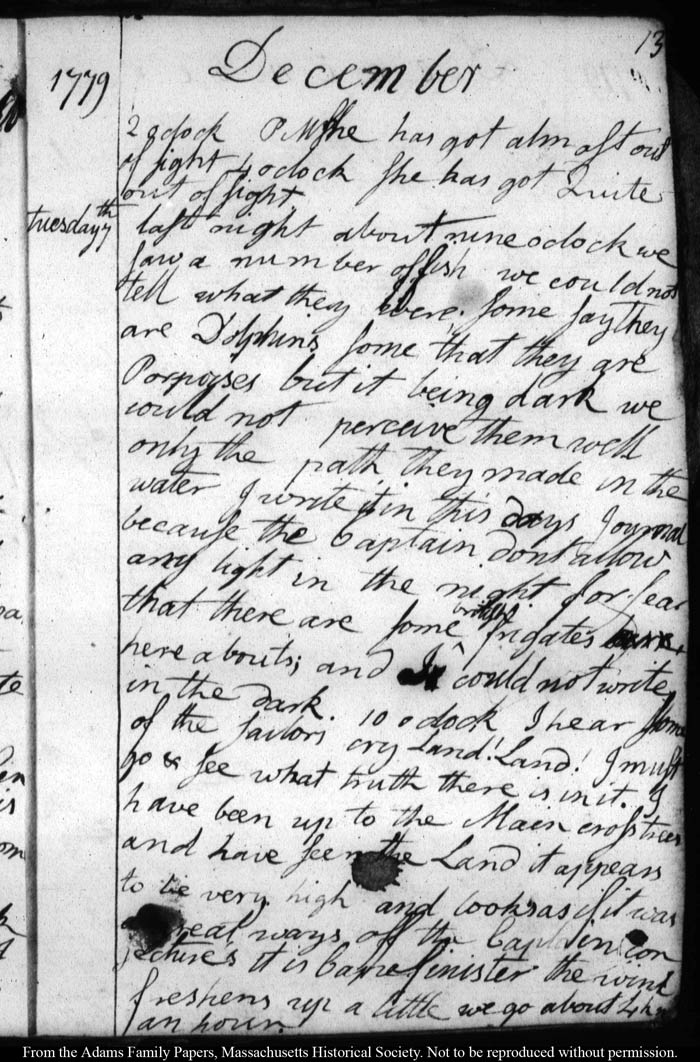 13
1779
December
2 oclock PM She has got almost out
of sight 4 oclock She has got Quite
out of sight
tuesday 7th
last night about nine oclock we
saw a number of fish we could not
tell what they were. some say they
are Dolphins some that they are
Porpoises but it being dark we
could not perceive them well
only the path they made in the
water I write it in this days Journal
because the Captain dont allow
any light in the night for fear
that there are some british frigates
here abouts; and I could not write
in the dark. 10 oclock I hear some
of the sailors cry Land! Land! I must
go & see what truth there is in it. I
have been up to the Main cross trees
and have seen the Land it appears
to be very high and looks as if it was
a great ways off the Captain con
jectures it is Cape finister the wind
freshens up a little we go about 4
an hour.
From the Adams Family Papers, Massachusetts Historical Society. Not to be reproduced without permission.